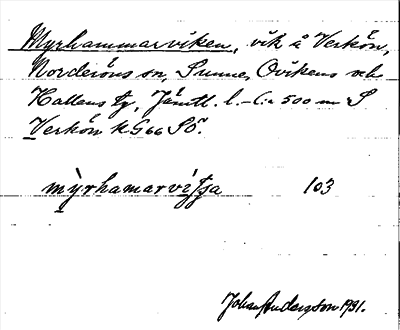 Myrhammarviken, vik å Verkön,
Norderöns sn, Sunne, Ovikens och
Hallens tg, Jämtl. l. – C:a 500 m S
Verkön k G66 Sö.
mỳrhamarvi̭tʃa 103
Johan Andersson 1931.